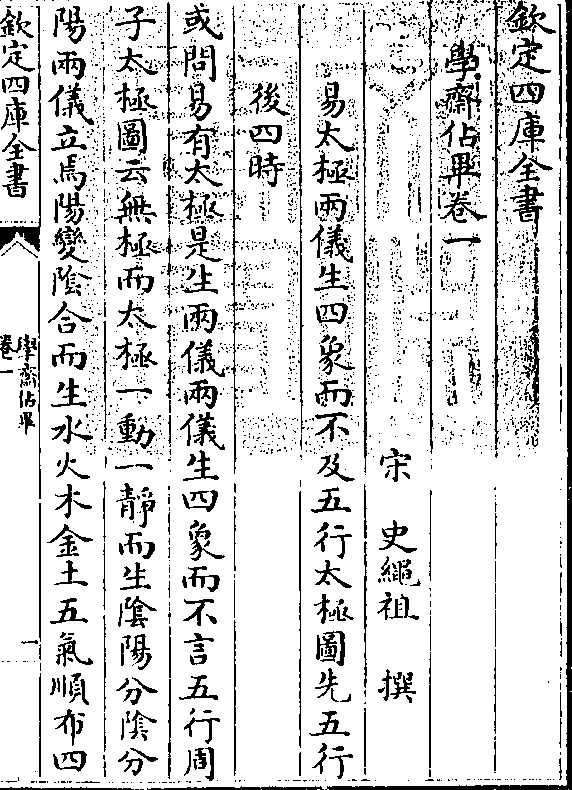 欽定四庫全書
學齋佔畢卷一
宋 史繩祖 撰
易太極兩儀生四象而不及五行太極圖先五行
後四時
或問易有太極是生兩儀兩儀生四象而不言五行周
子太極圖云無極而太極一動一靜而生陰陽分陰分
陽兩儀立焉陽變陰合而生水火木金土五氣順布四
欽定四庫全書
學齋佔畢
卷一
一